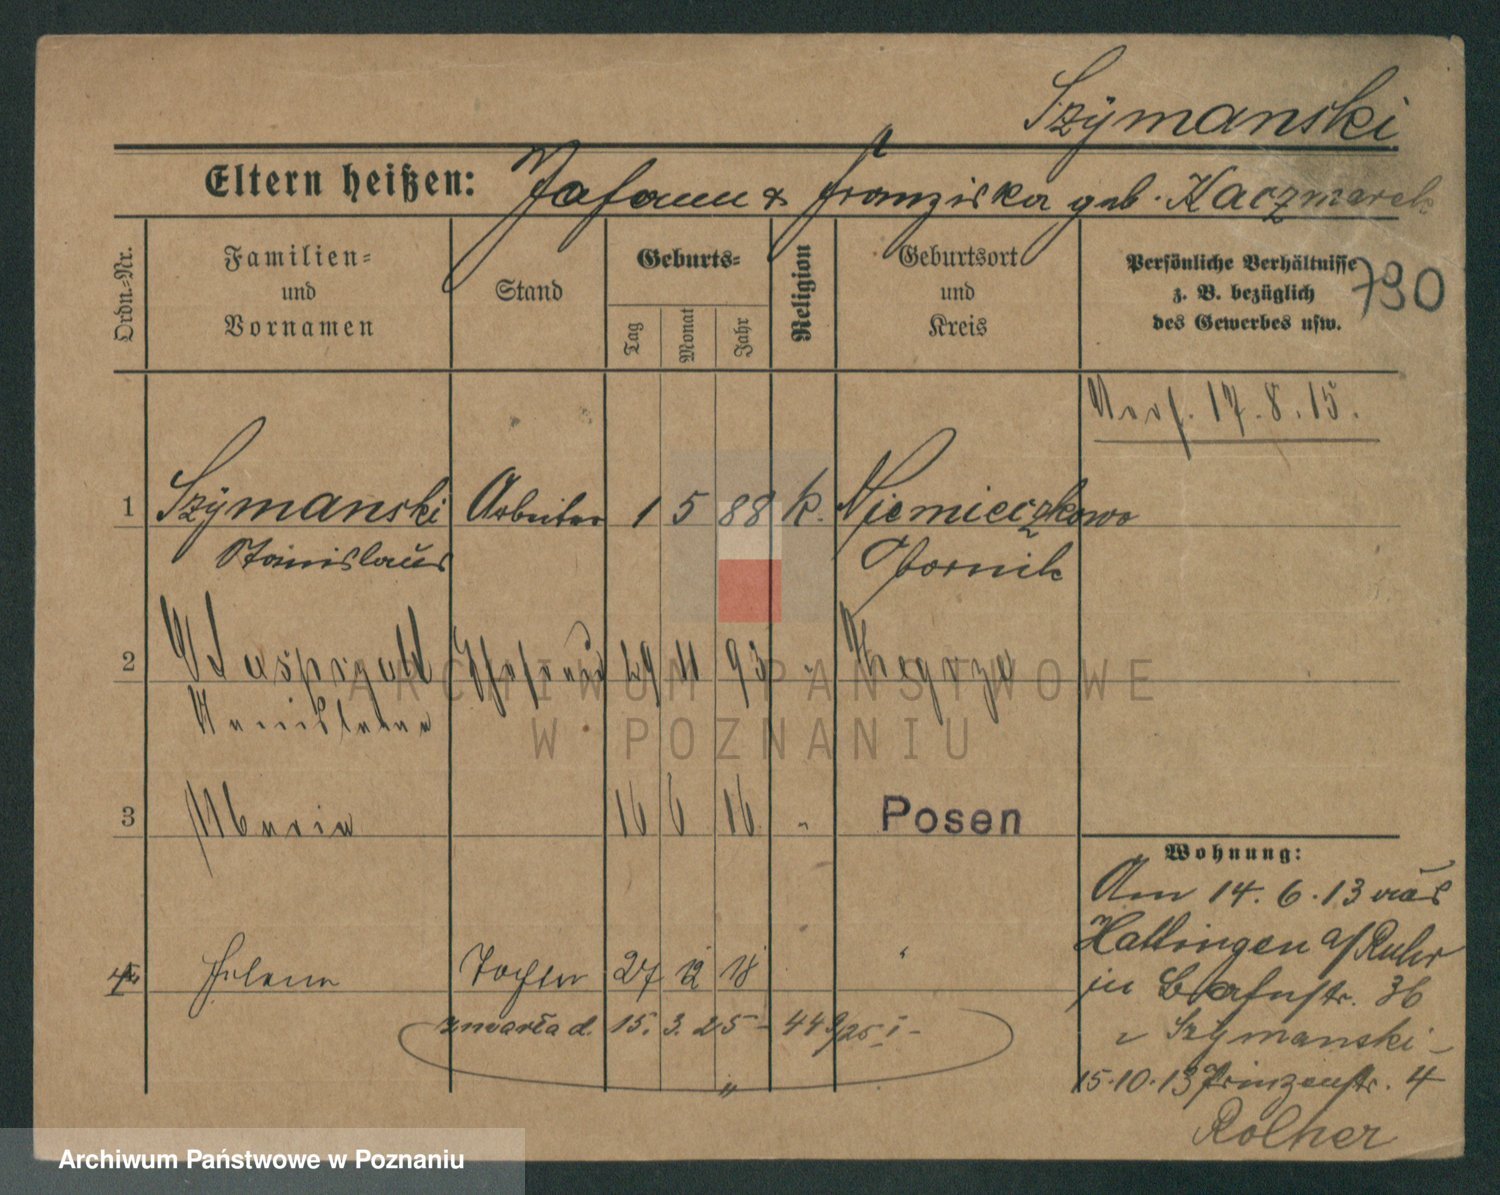 Szymanski
Eltern heißen: Johann & Franziska geb. Kaczmarek
Ordn.-Nr.
Familien-
und
Vornamen
Stand
Geburts-
Tag
Monat
Jahr
Religion
Geburtsort
und
Kreis
Persönliche Verhältnisse
z. B. bezüglich
des Gewerbes usw.
790
17.8.15.
1 Szymanski Arbeiter 1 5 88 k. Niemieczkowo
Stanislaus Obornik
2 Ehefrau 29 11 93 "
3 Maria 16 6 16 " Posen
4 Helene Tochter 27 12 18 "
zmarła d. 15. 3. 25 - 449/25 I -
Wohnung:
Am 14. 6. 13 aus
Hattingen a/Ruhr
in Bahnstr. 36
Szymanski -
15.10.13 Prinzenstr. 4
ARCHIWUM PAŃSTWOWE
W POZNANIU
Archiwum Państwowe w Poznaniu